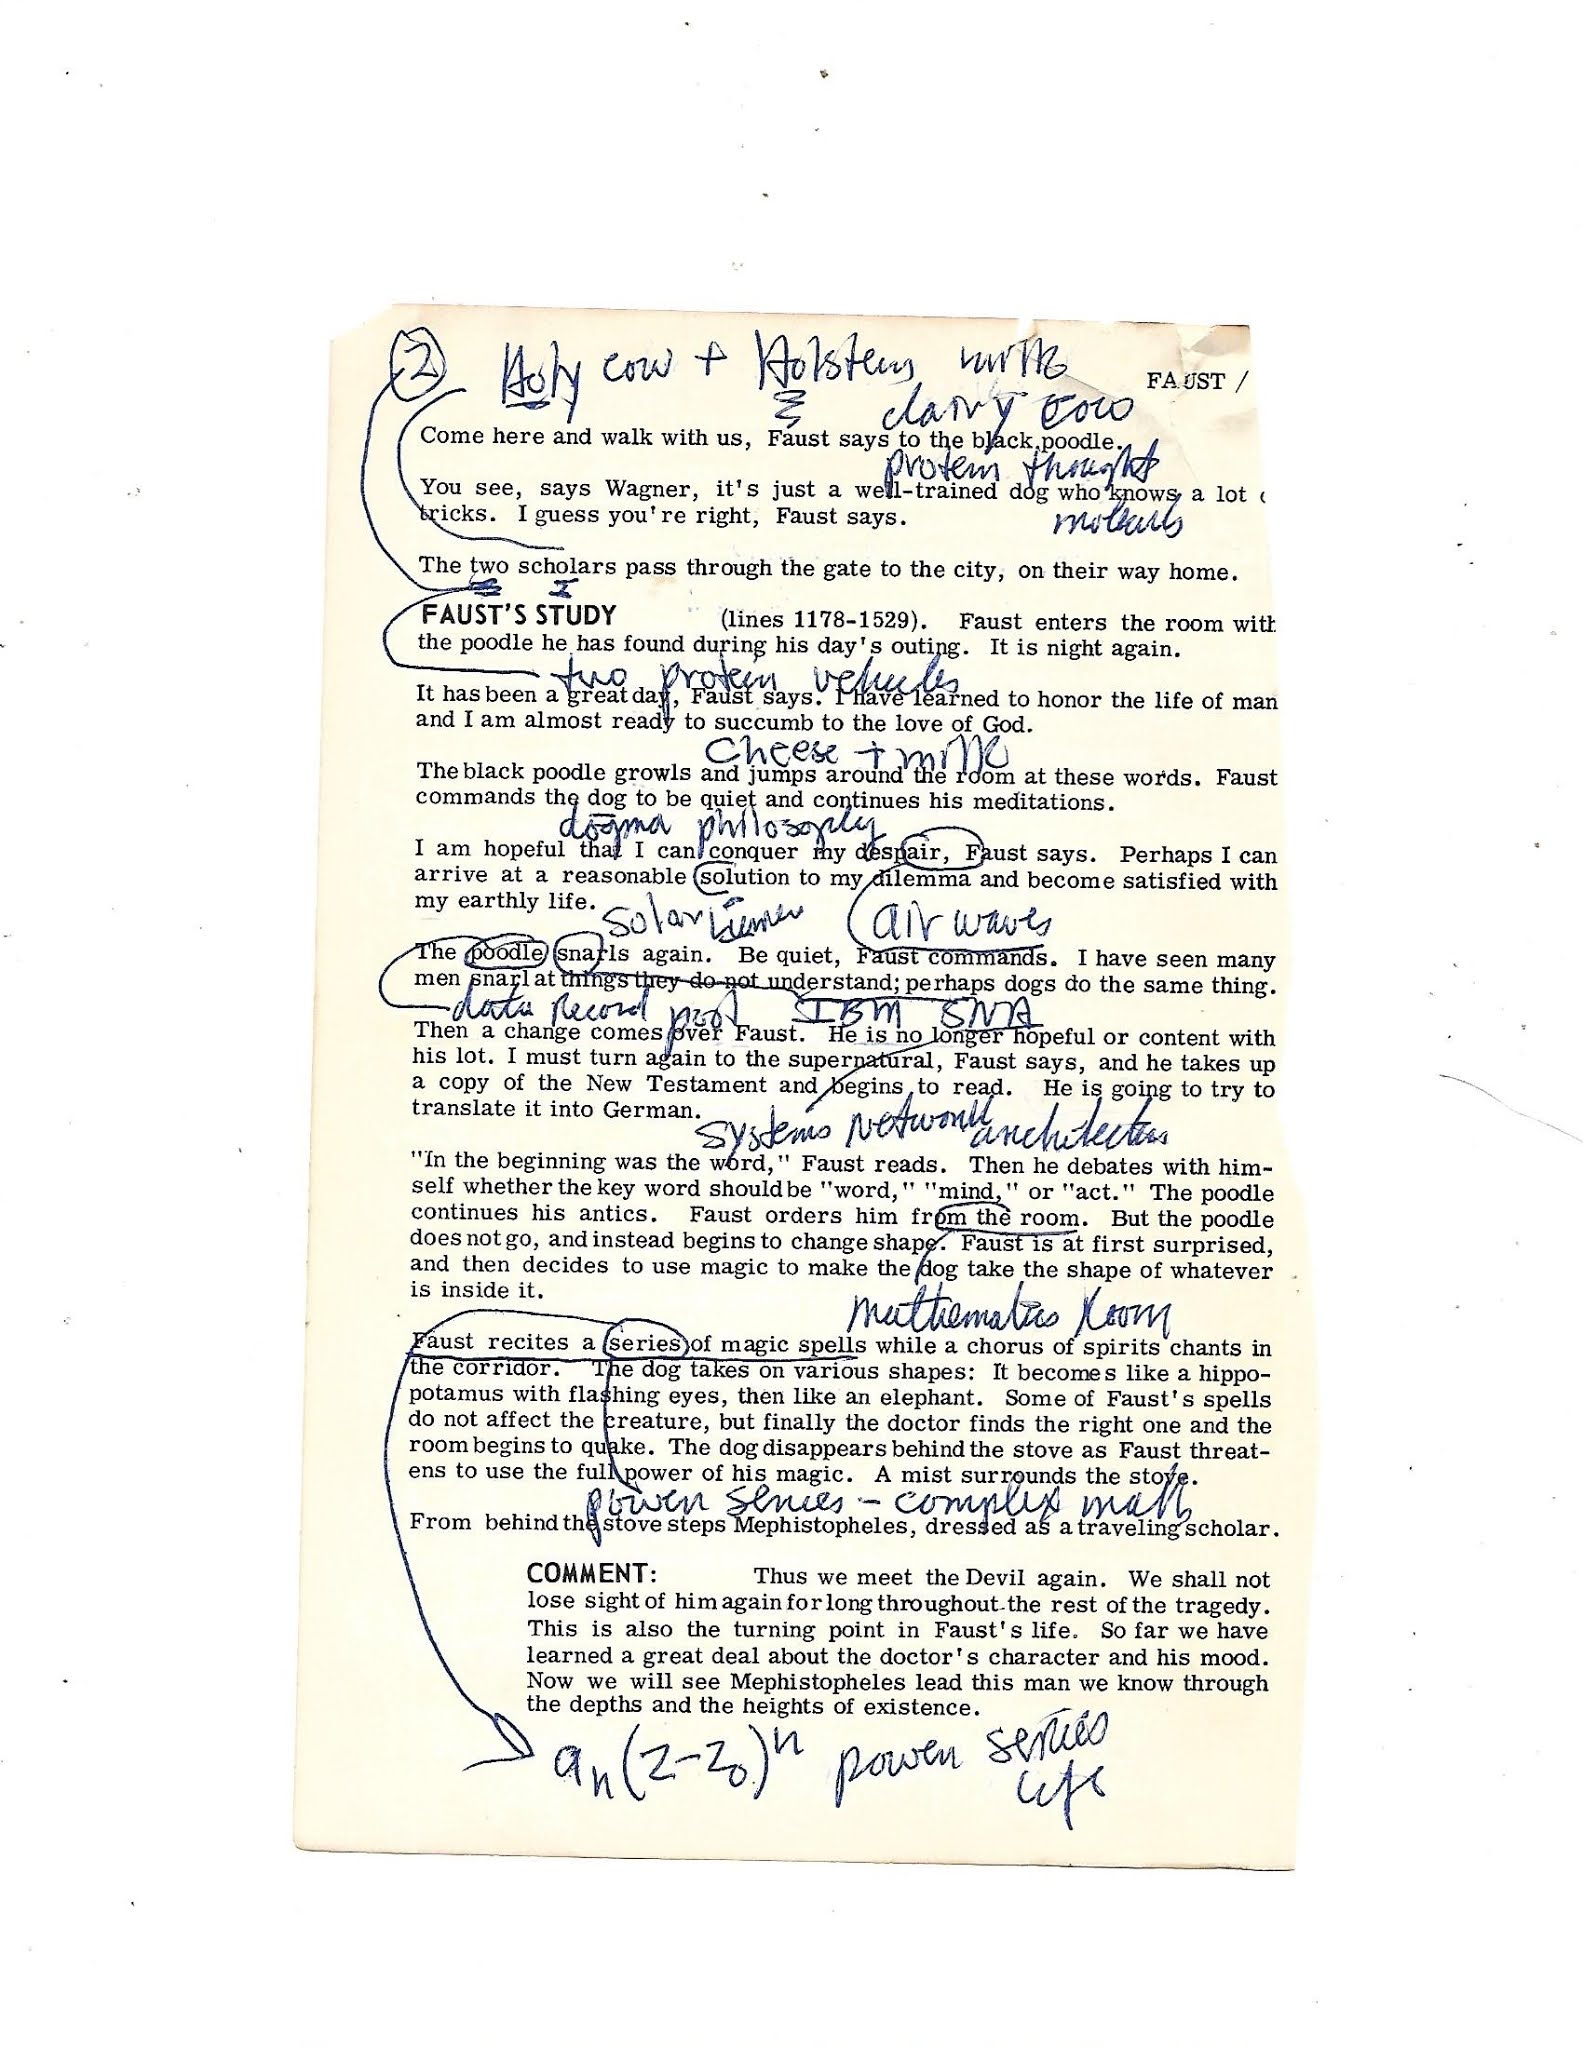 2 Holy cow + Holstein milk
FAUST /
dairy cow
Come here and walk with us, Faust says to the black poodle.
protein thought
You see, says Wagner, it's just a well-trained dog who knows a lot
molecules
tricks. I guess you're right, Faust says.
The two scholars pass through the gate to the city, on their way home.
FAUST'S STUDY (lines 1178-1529). Faust enters the room with
the poodle he has found during his day's outing. It is night again.
two protein vehicles
It has been a great day, Faust says. I have learned to honor the life of man
and I am almost ready to succumb to the love of God.
cheese + milk
The black poodle growls and jumps around the room at these words. Faust
commands the dog to be quiet and continues his meditations.
dogma philosophy
I am hopeful that I can conquer my despair, Faust says. Perhaps I can
arrive at a reasonable solution to my dilemma and become satisfied with
my earthly life.
solar air waves
The poodle snarls again. Be quiet, Faust commands. I have seen many
men snarl at things they do not understand; perhaps dogs do the same thing.
data record pool IBM SNA
Then a change comes over Faust. He is no longer hopeful or content with
his lot. I must turn again to the supernatural, Faust says, and he takes up
a copy of the New Testament and begins to read. He is going to try to
translate it into German.
systems network architecture
"In the beginning was the word," Faust reads. Then he debates with him-
self whether the key word should be "word," "mind," or "act." The poodle
continues his antics. Faust orders him from the room. But the poodle
does not go, and instead begins to change shape. Faust is at first surprised,
and then decides to use magic to make the dog take the shape of whatever
is inside it.
mathematics room
Faust recites a series of magic spells while a chorus of spirits chants in
the corridor. The dog takes on various shapes: It becomes like a hippo-
potamus with flashing eyes, then like an elephant. Some of Faust's spells
do not affect the creature, but finally the doctor finds the right one and the
room begins to quake. The dog disappears behind the stove as Faust threat-
ens to use the full power of his magic. A mist surrounds the stove.
power series - complex math
From behind the stove steps Mephistopheles, dressed as a traveling scholar.
COMMENT: Thus we meet the Devil again. We shall not
lose sight of him again for long throughout the rest of the tragedy.
This is also the turning point in Faust's life. So far we have
learned a great deal about the doctor's character and his mood.
Now we will see Mephistopheles lead this man we know through
the depths and the heights of existence.
aₙ(z-z₀)ⁿ power series
life